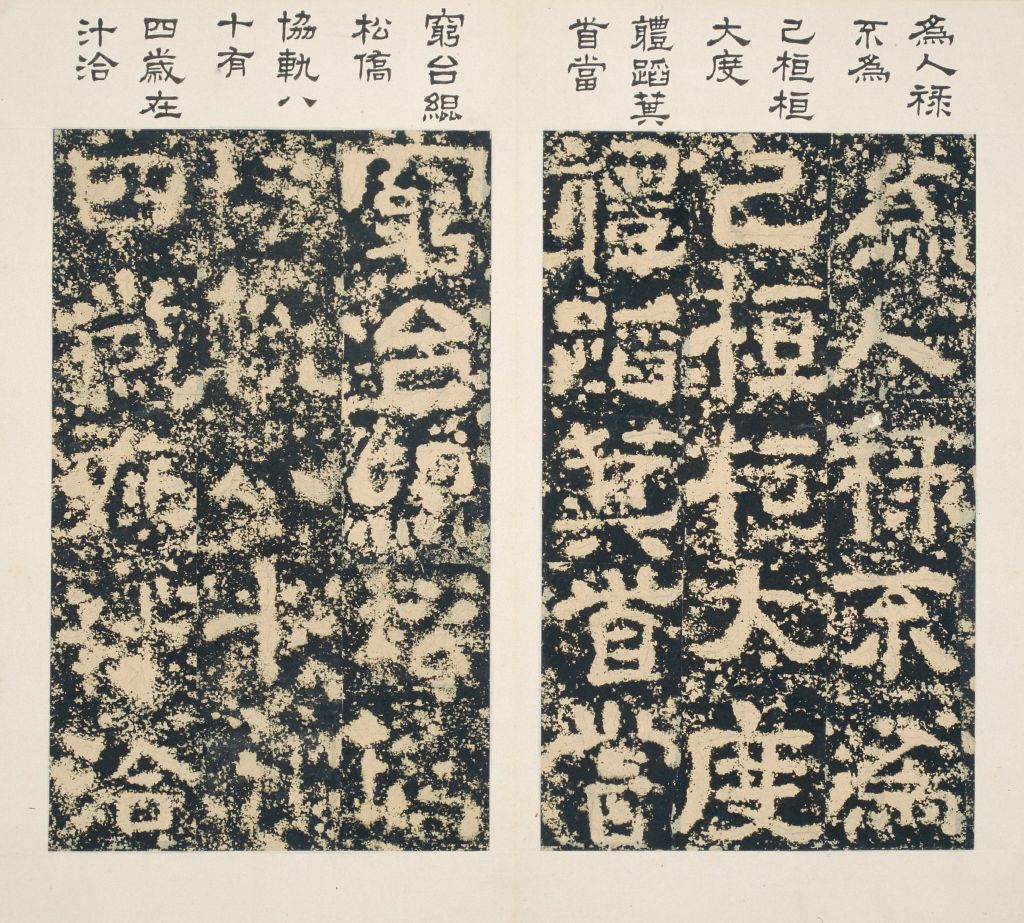 為人祿
不為
己桓桓
大度
體蹈萁
首當
為人祿不為
己桓桓大度
體蹈萁首當
窮台緄
松僑
協軌八
十有
四歲在
汁洽
窮台緄松僑
協軌八十有
四歲在汁洽